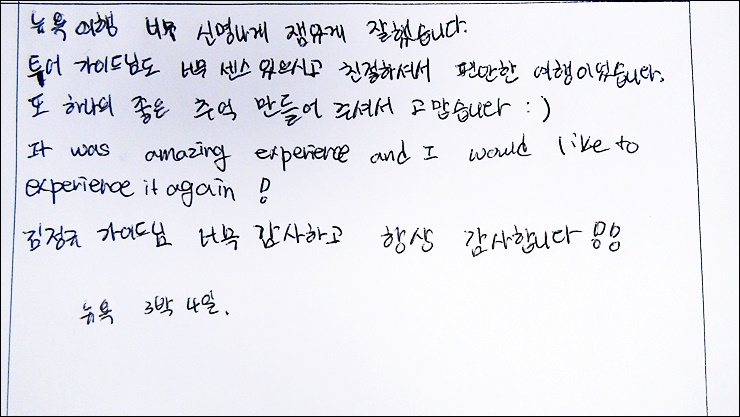 뉴욕 여행 너무 신명나게 잼있게 잘했습니다.
투어 가이드님도 너무 센스 있으시고 친절하셔서 편안한 여행이었습니다.
또 하나의 좋은 추억 만들어 주셔서 고맙습니다 : )
It was amazing experience and I would like to
experience it again !
가이드님 너무 감사하고 항상 감사합니다 !!
뉴욕 3박 4일.